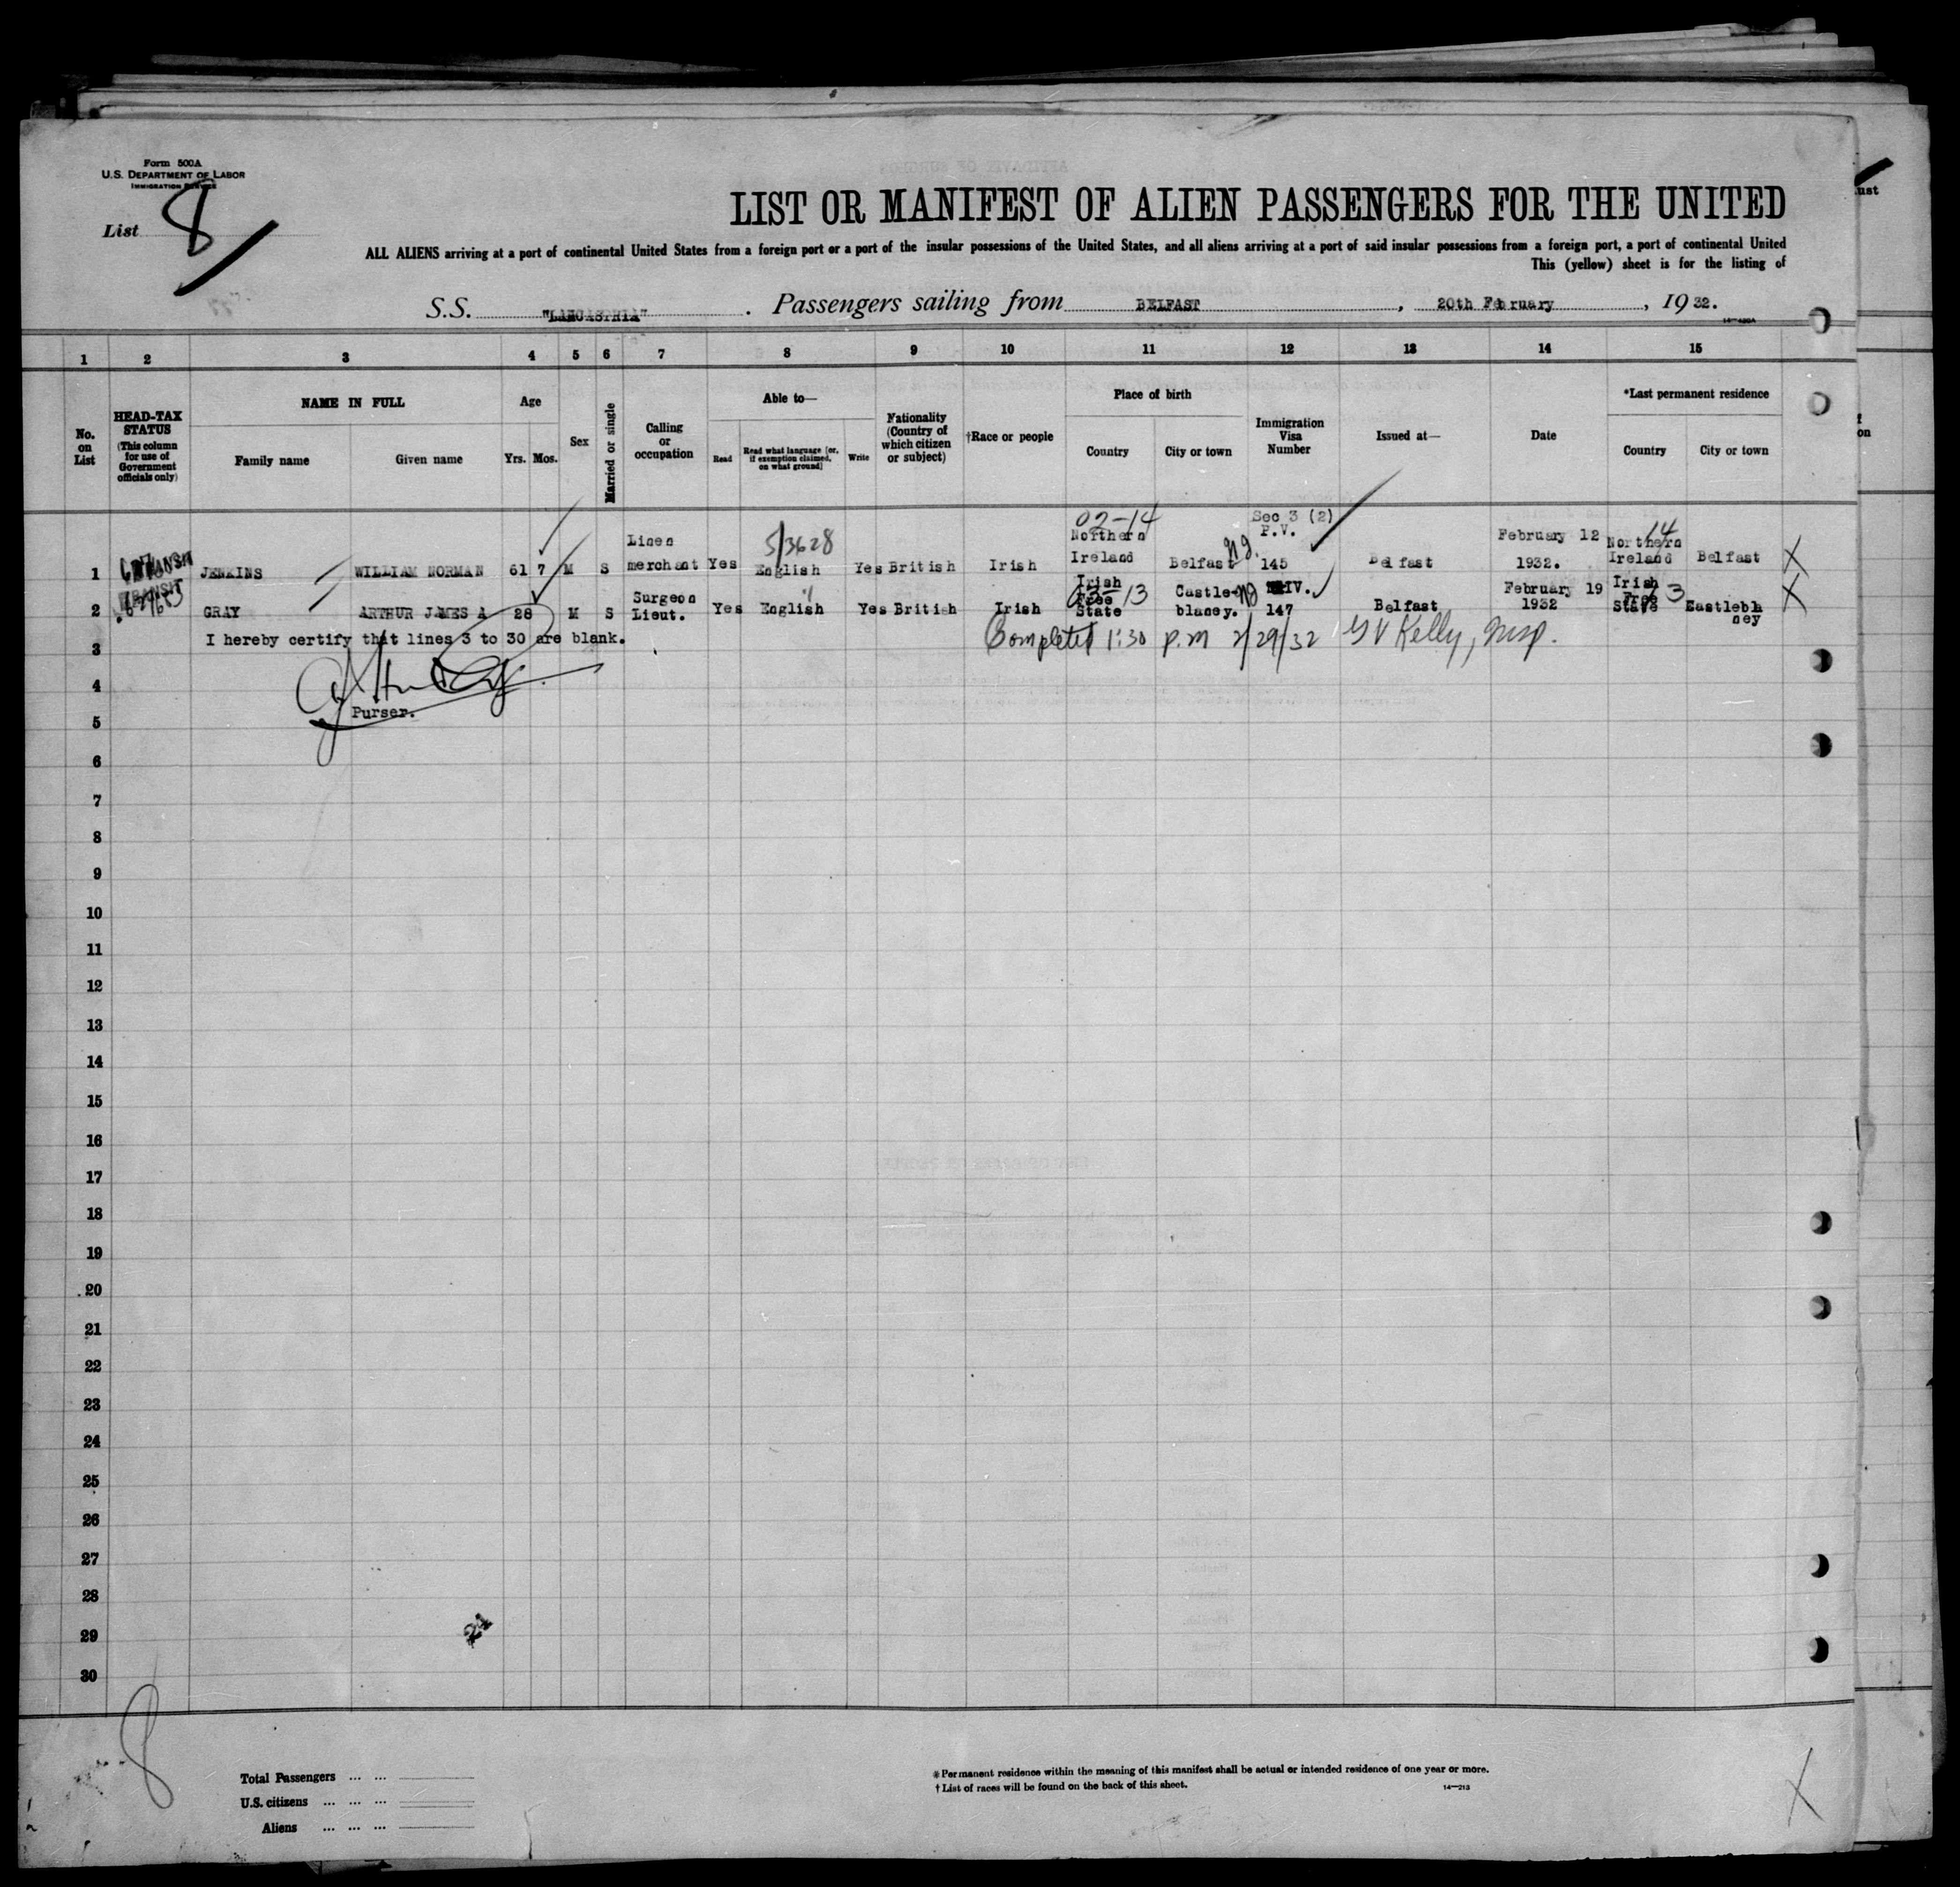 Form 500A
U.S. DEPARTMENT OF LABOR
IMMIGRATION SERVICE
List 8
LIST OR MANIFEST OF ALIEN PASSENGERS FOR THE UNITED
ALL ALIENS arriving at a port of continental United States from a foreign port or a port of the insular possessions of the United States, and all aliens arriving at a port of said insular possessions from a foreign port, a port of continental United
This (yellow) sheet is for the listing of
S.S. "LANCASTRIA". Passengers sailing from BELFAST, 20th February, 1932.
1 2 3 4 5 6 7 8 9 10 11 12 13 14 15
No. on List
HEAD-TAX STATUS (This column for use of Government officials only)
NAME IN FULL
Family name
Given name
Age
Yrs. Mos.
Sex
Married or single
Calling or occupation
Able to—
Read
Read what language [or, if exemption claimed, on what ground]
Write
Nationality (Country of which citizen or subject)
†Race or people
Place of birth
Country
City or town
Immigration Visa Number
Issued at—
Date
*Last permanent residence
Country
City or town
1 TRANSIT JENKINS WILLIAM NORMAN 61 7 M S Linen merchant Yes 5/3628 English Yes British Irish 02-14 Northern Ireland Belfast Sec 3 (2) P.V. 145 Belfast February 12 1932. 14 Northern Ireland Belfast X
2 TRANSIT GRAY ARTHUR JAMES A 28 M S Surgeon Lieut. Yes English Yes British Irish Irish Free State 13 Castle-blaney. IV. 147 Belfast February 19 1932 Irish Free State 3 Castlebla ney X
I hereby certify that lines 3 to 30 are blank.
Completed 1:30 p.m 2/29/32 G V Kelly, Insp.
3
4
Purser.
5
6
7
8
9
10
11
12
13
14
15
16
17
18
19
20
21
22
23
24
25
26
27
28
29
30
8
Total Passengers ... ...
U.S. citizens ... ... ...
Aliens ... ... ...
*Permanent residence within the meaning of this manifest shall be actual or intended residence of one year or more.
†List of races will be found on the back of this sheet.
14—213
X